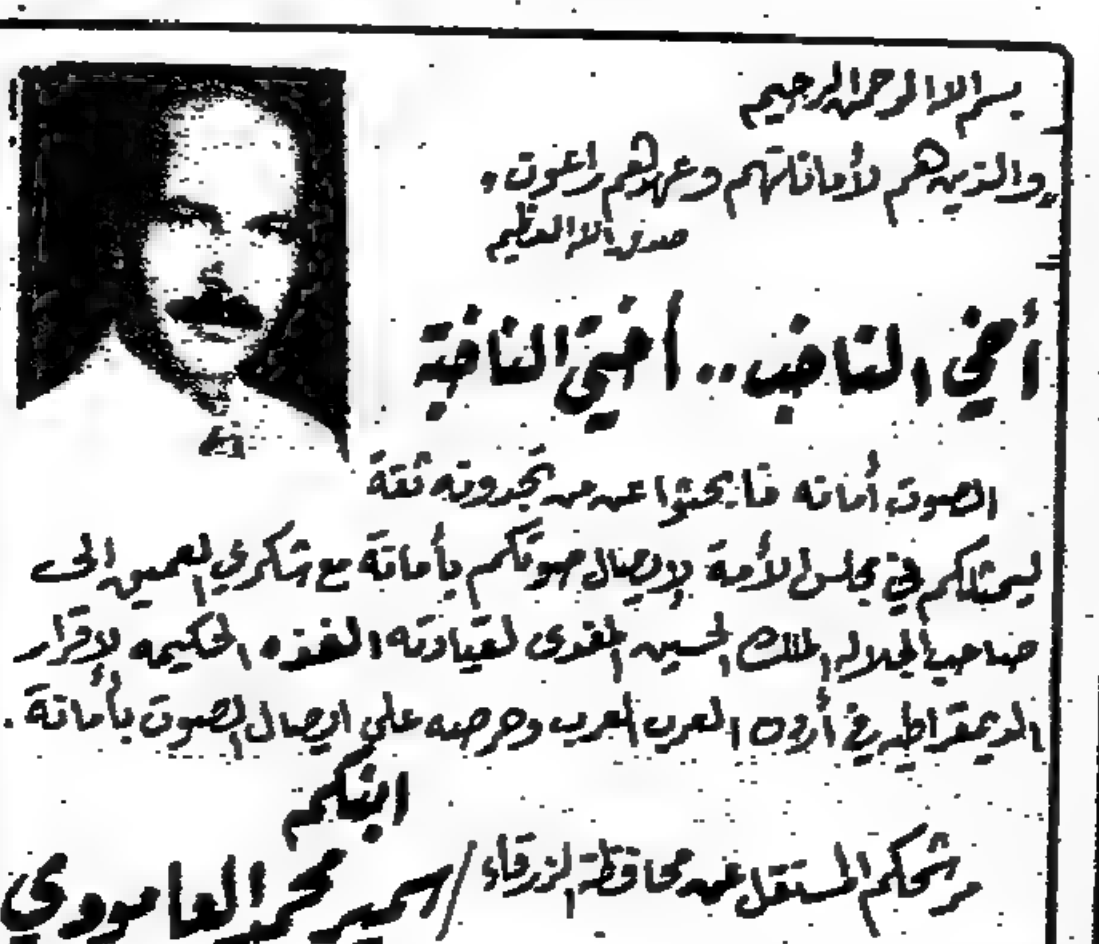 بسم الله الرحمن الرحيم
"والذين هم لأماناتهم وعهدهم راعون"
صدق الله العظيم
أخي الناخب .. أختي الناخبة
الصوت أمانه فابحثوا عن من تجدونه ثقة
ليمثلكم في مجلس الأمة لإيصال صوتكم بأمانة مع شكري العميق الى
صاحب الجلاله الملك الحسين المفدى لقيادته الفذه الحكيمه لإقرار
الديمقراطيه في أردن العرب وحرصه على ايصال الصوت بأمانة .
ابنكم
مرشحكم المستقل عن محافظة الزرقاء / سمير محمد العامودي